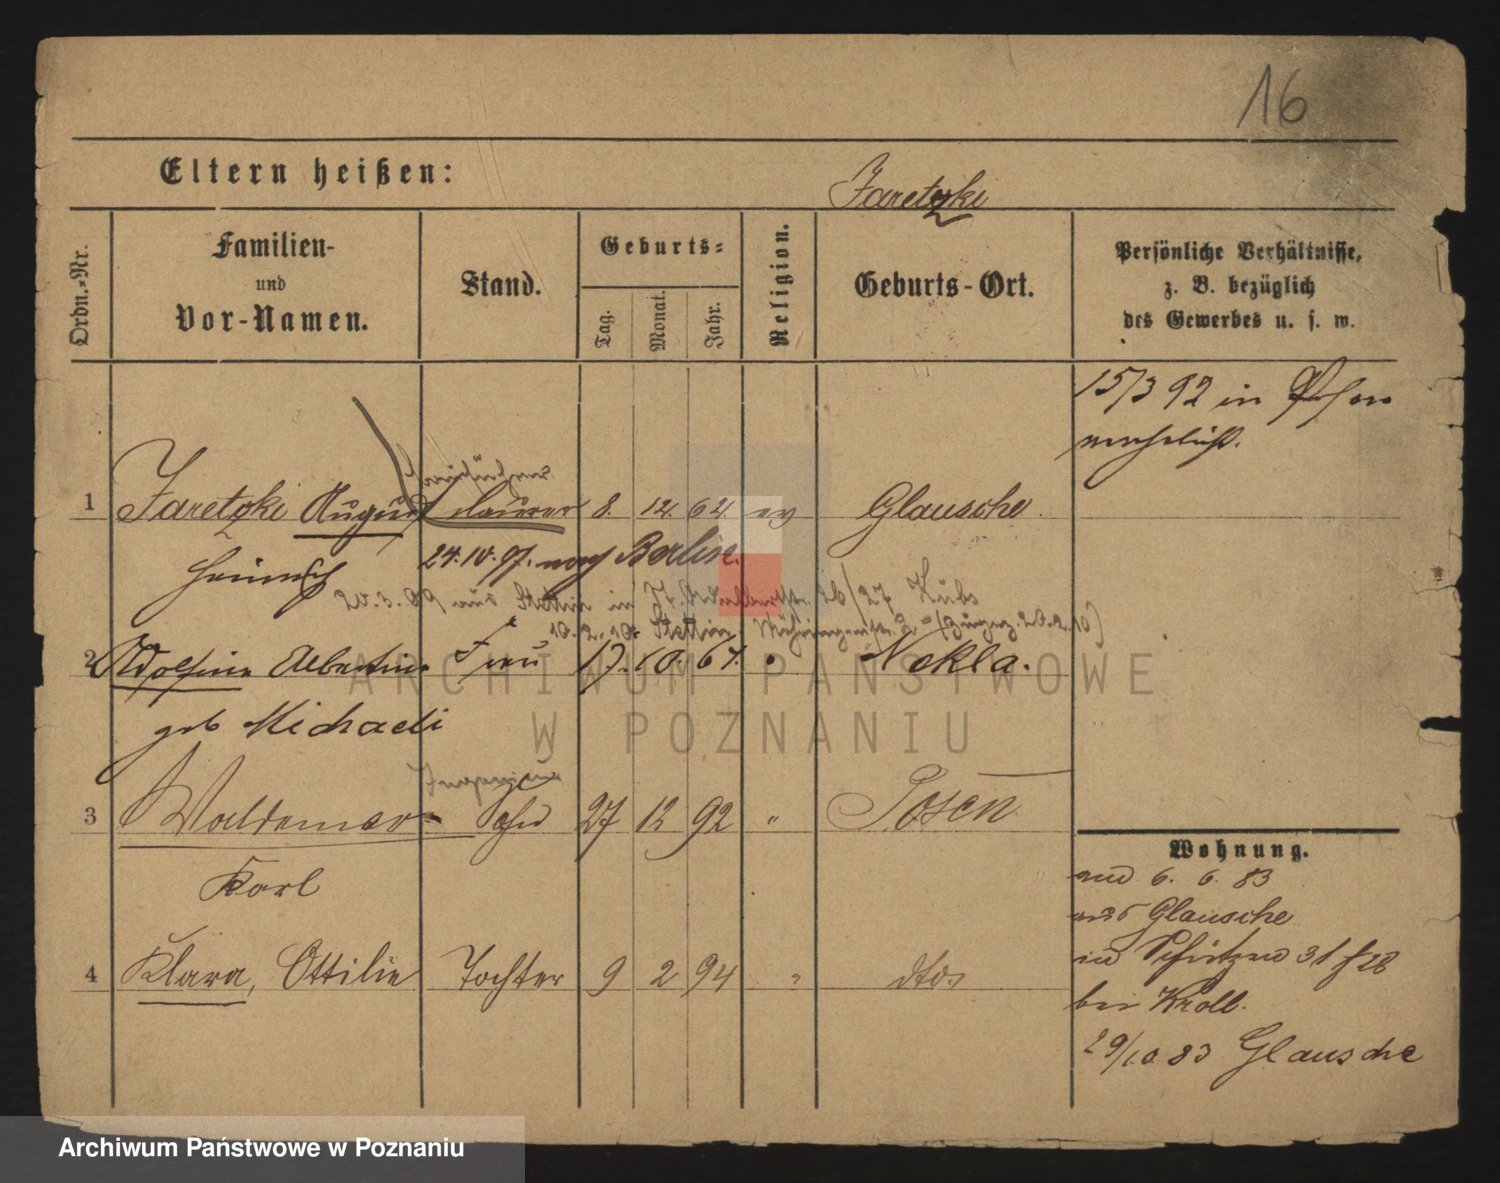 16
Eltern heißen:
Jaretzki
Ordn.-Nr.
Familien-
und
Vor-Namen.
Stand.
Geburts-
Tag.
Monat.
Jahr.
Religion.
Geburts-Ort.
Persönliche Verhältnisse,
z. B. bezüglich
des Gewerbes u. s. w.
15/3 92 in Posen
verehelicht.
1 Jaretzki August Maurer 8. 12. 64. ev Glausche
Heinrich
24.10.97. nach Berlin.
aus Stettin in
2 Adolfine Albertine Frau 17. 10. 67. " Nekla.
geb Michaeli
3 Waldemar Sohn 27 12 92 " Posen
Karl
4 Klara, Ottilie Tochter 9 2 94 " dto.
Wohnung.
6. 6. 83
aus Glausche
31
bei Kroll.
29/10 83 Glausche
ARCHIWUM PAŃSTWOWE
W POZNANIU
Archiwum Państwowe w Poznaniu